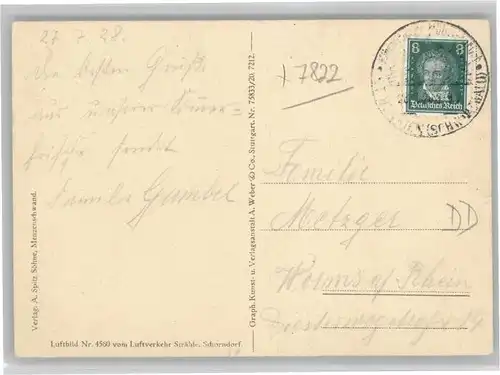 27.7.28.
Die besten Grüße
aus unserer Sommer-
frische sendet
Familie Gambel
Verlag: A. Spitz Söhne, Menzenschwand.
Luftbild Nr. 4560 vom Luftverkehr Strähle, Schorndorf.
Graph. Kunst- u. Verlagsanstalt A. Weber & Co., Stuttgart. Nr. 75833/20. 7212.
+ 7822
8 8
Deutsches Reich
Familie
Metzger
DD
Worms a/Rhein